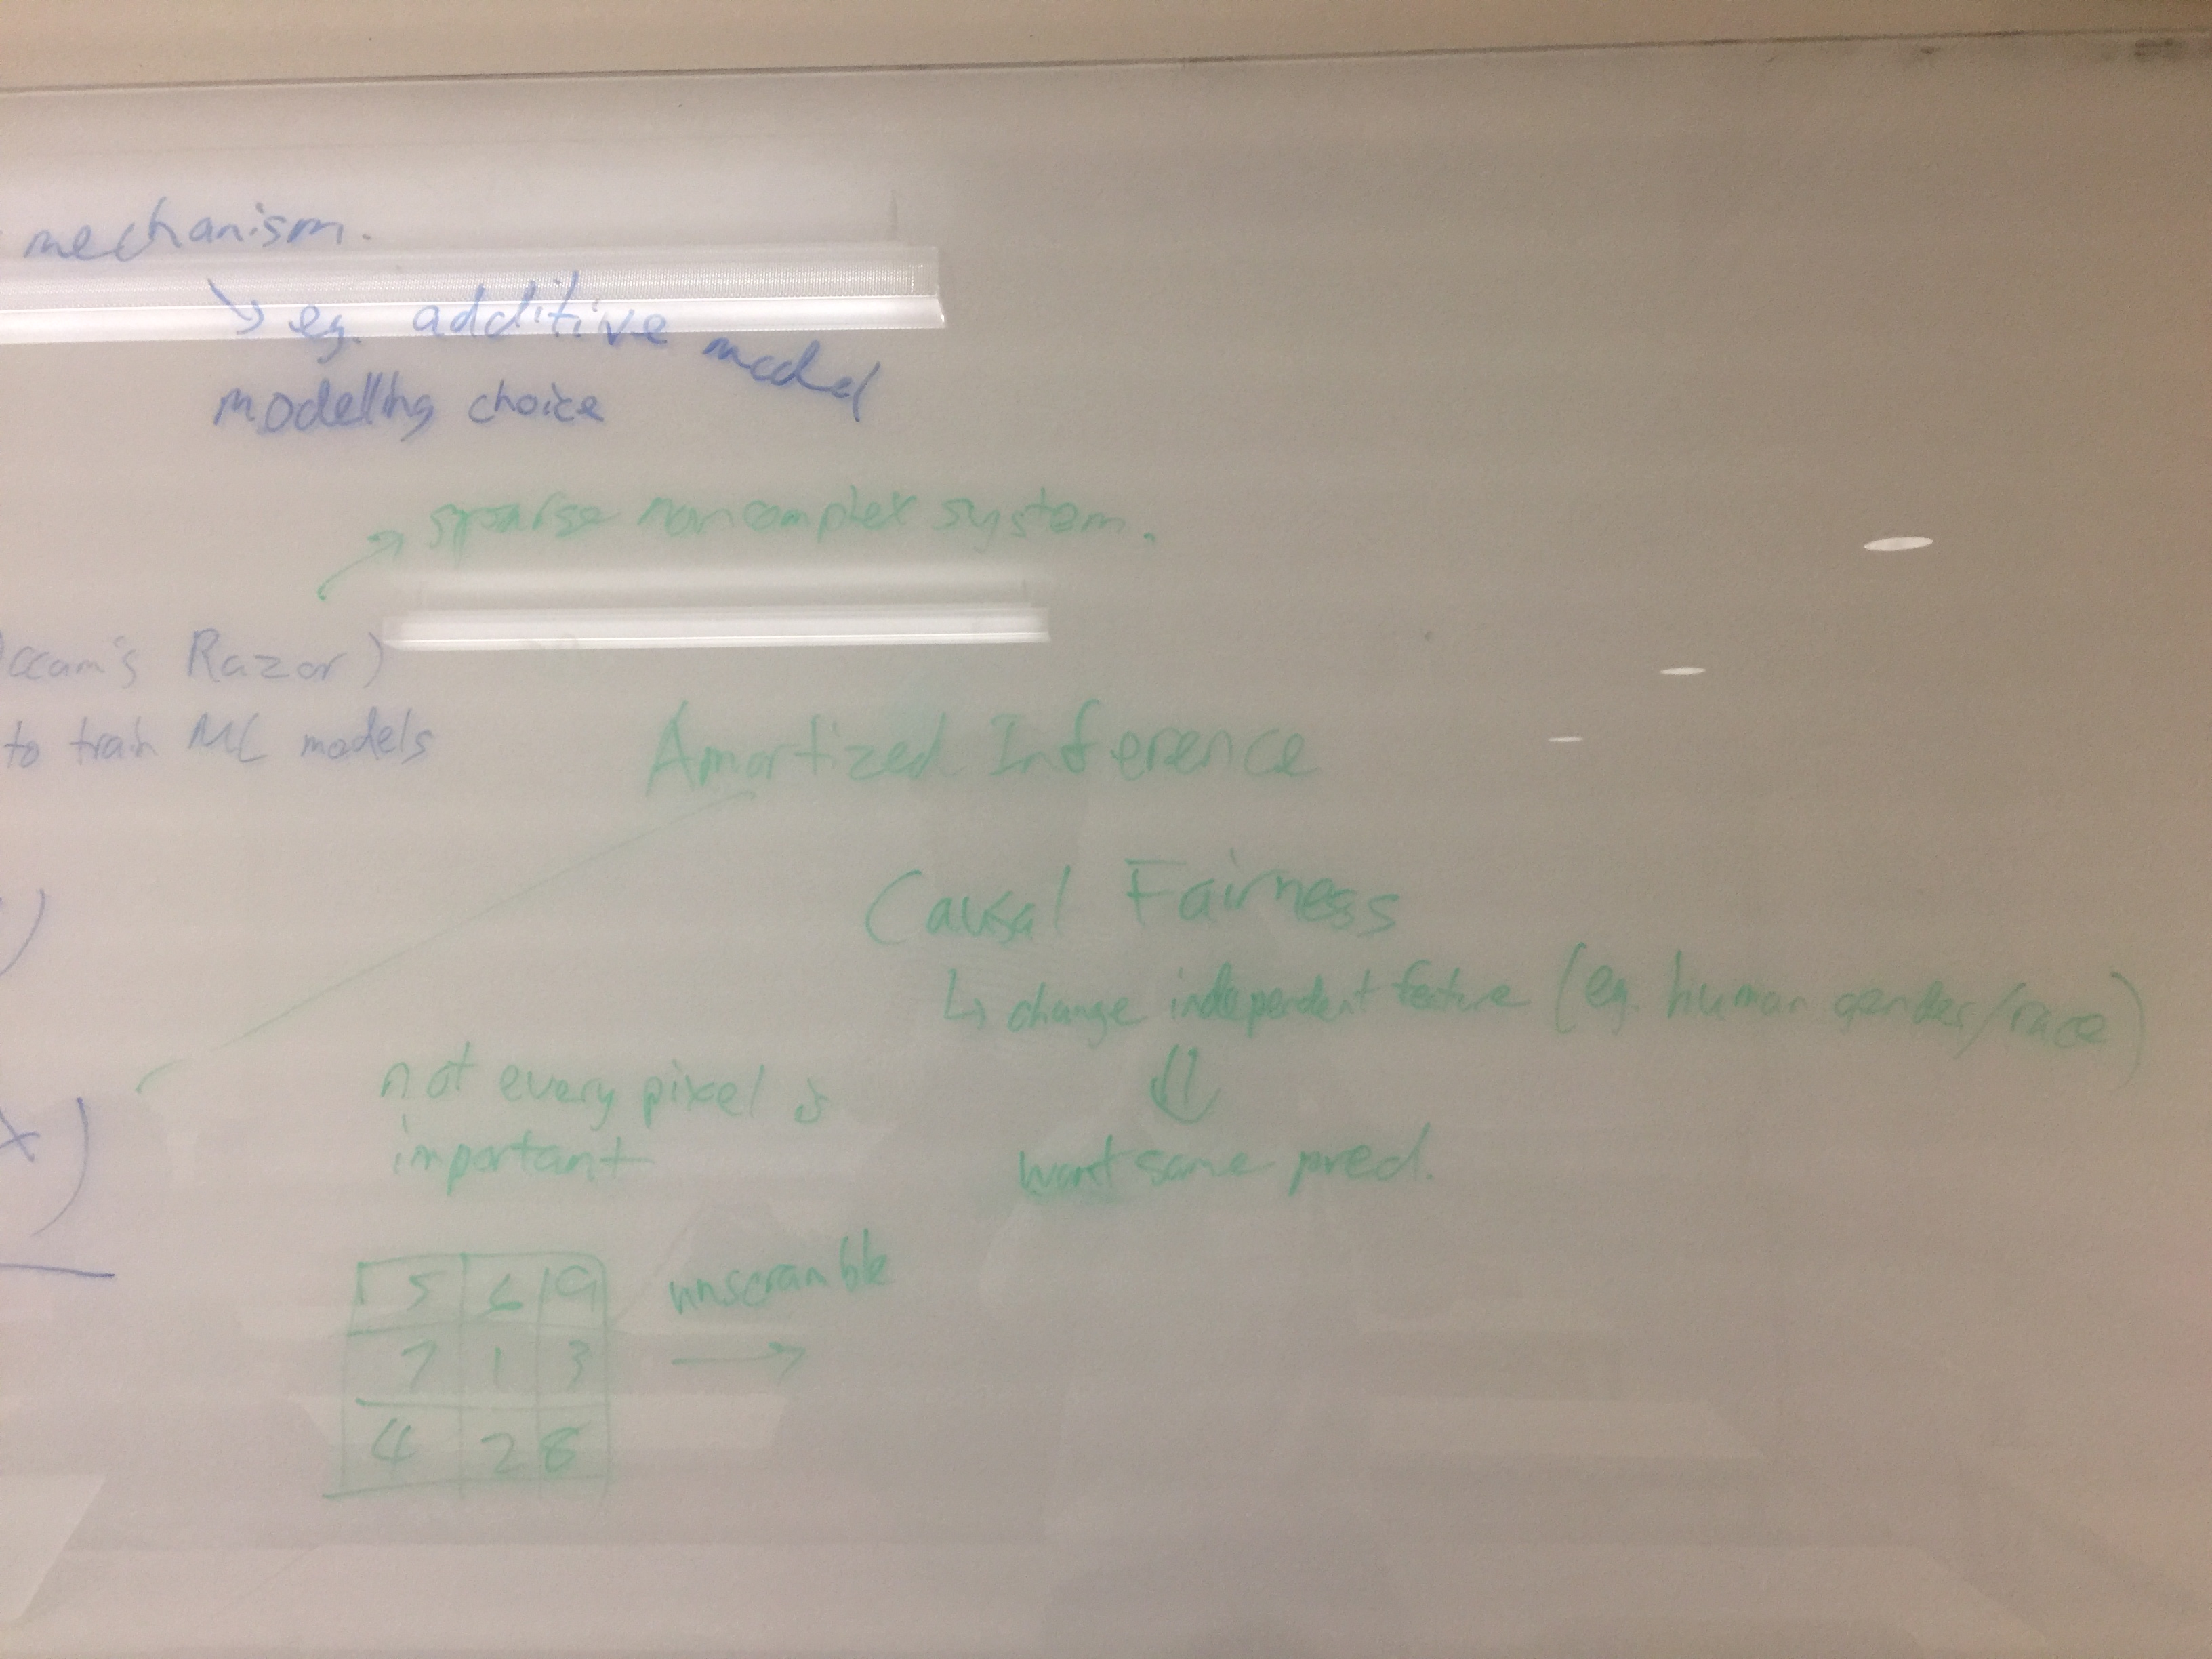 mechanism.
↘ eg. additive model
modelling choice
↗ sparse noncomplex system.
ccam's Razor)
to train ML models
Amortized Inference
)
Causal Fairness
↳ change independent feature (eg. human gender/race)
⇓
want same pred.
not every pixel is
important
x)
5 6 9
7 1 3
4 2 8
unscramble
→